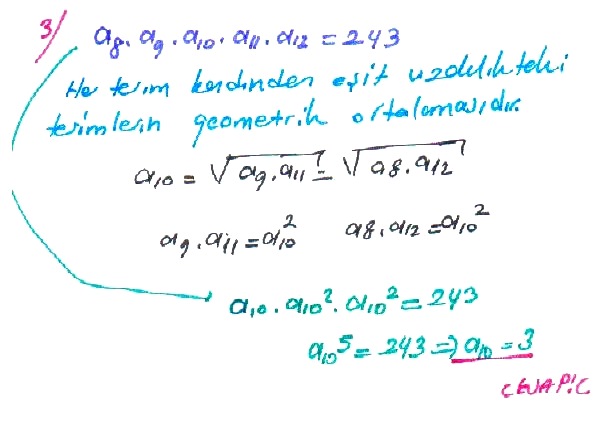 3/ a₈. a₉. a₁₀. a₁₁. a₁₂ = 243
Her terim kendinden eşit uzaklıktaki
terimlerin geometrik ortalamasıdır.
a₁₀ = √a₉.a₁₁ = √a₈.a₁₂
a₉.a₁₁ = a₁₀² a₈.a₁₂ = a₁₀²
a₁₀. a₁₀². a₁₀² = 243
a₁₀⁵ = 243 ⇒ a₁₀ = 3
CEVAP:C